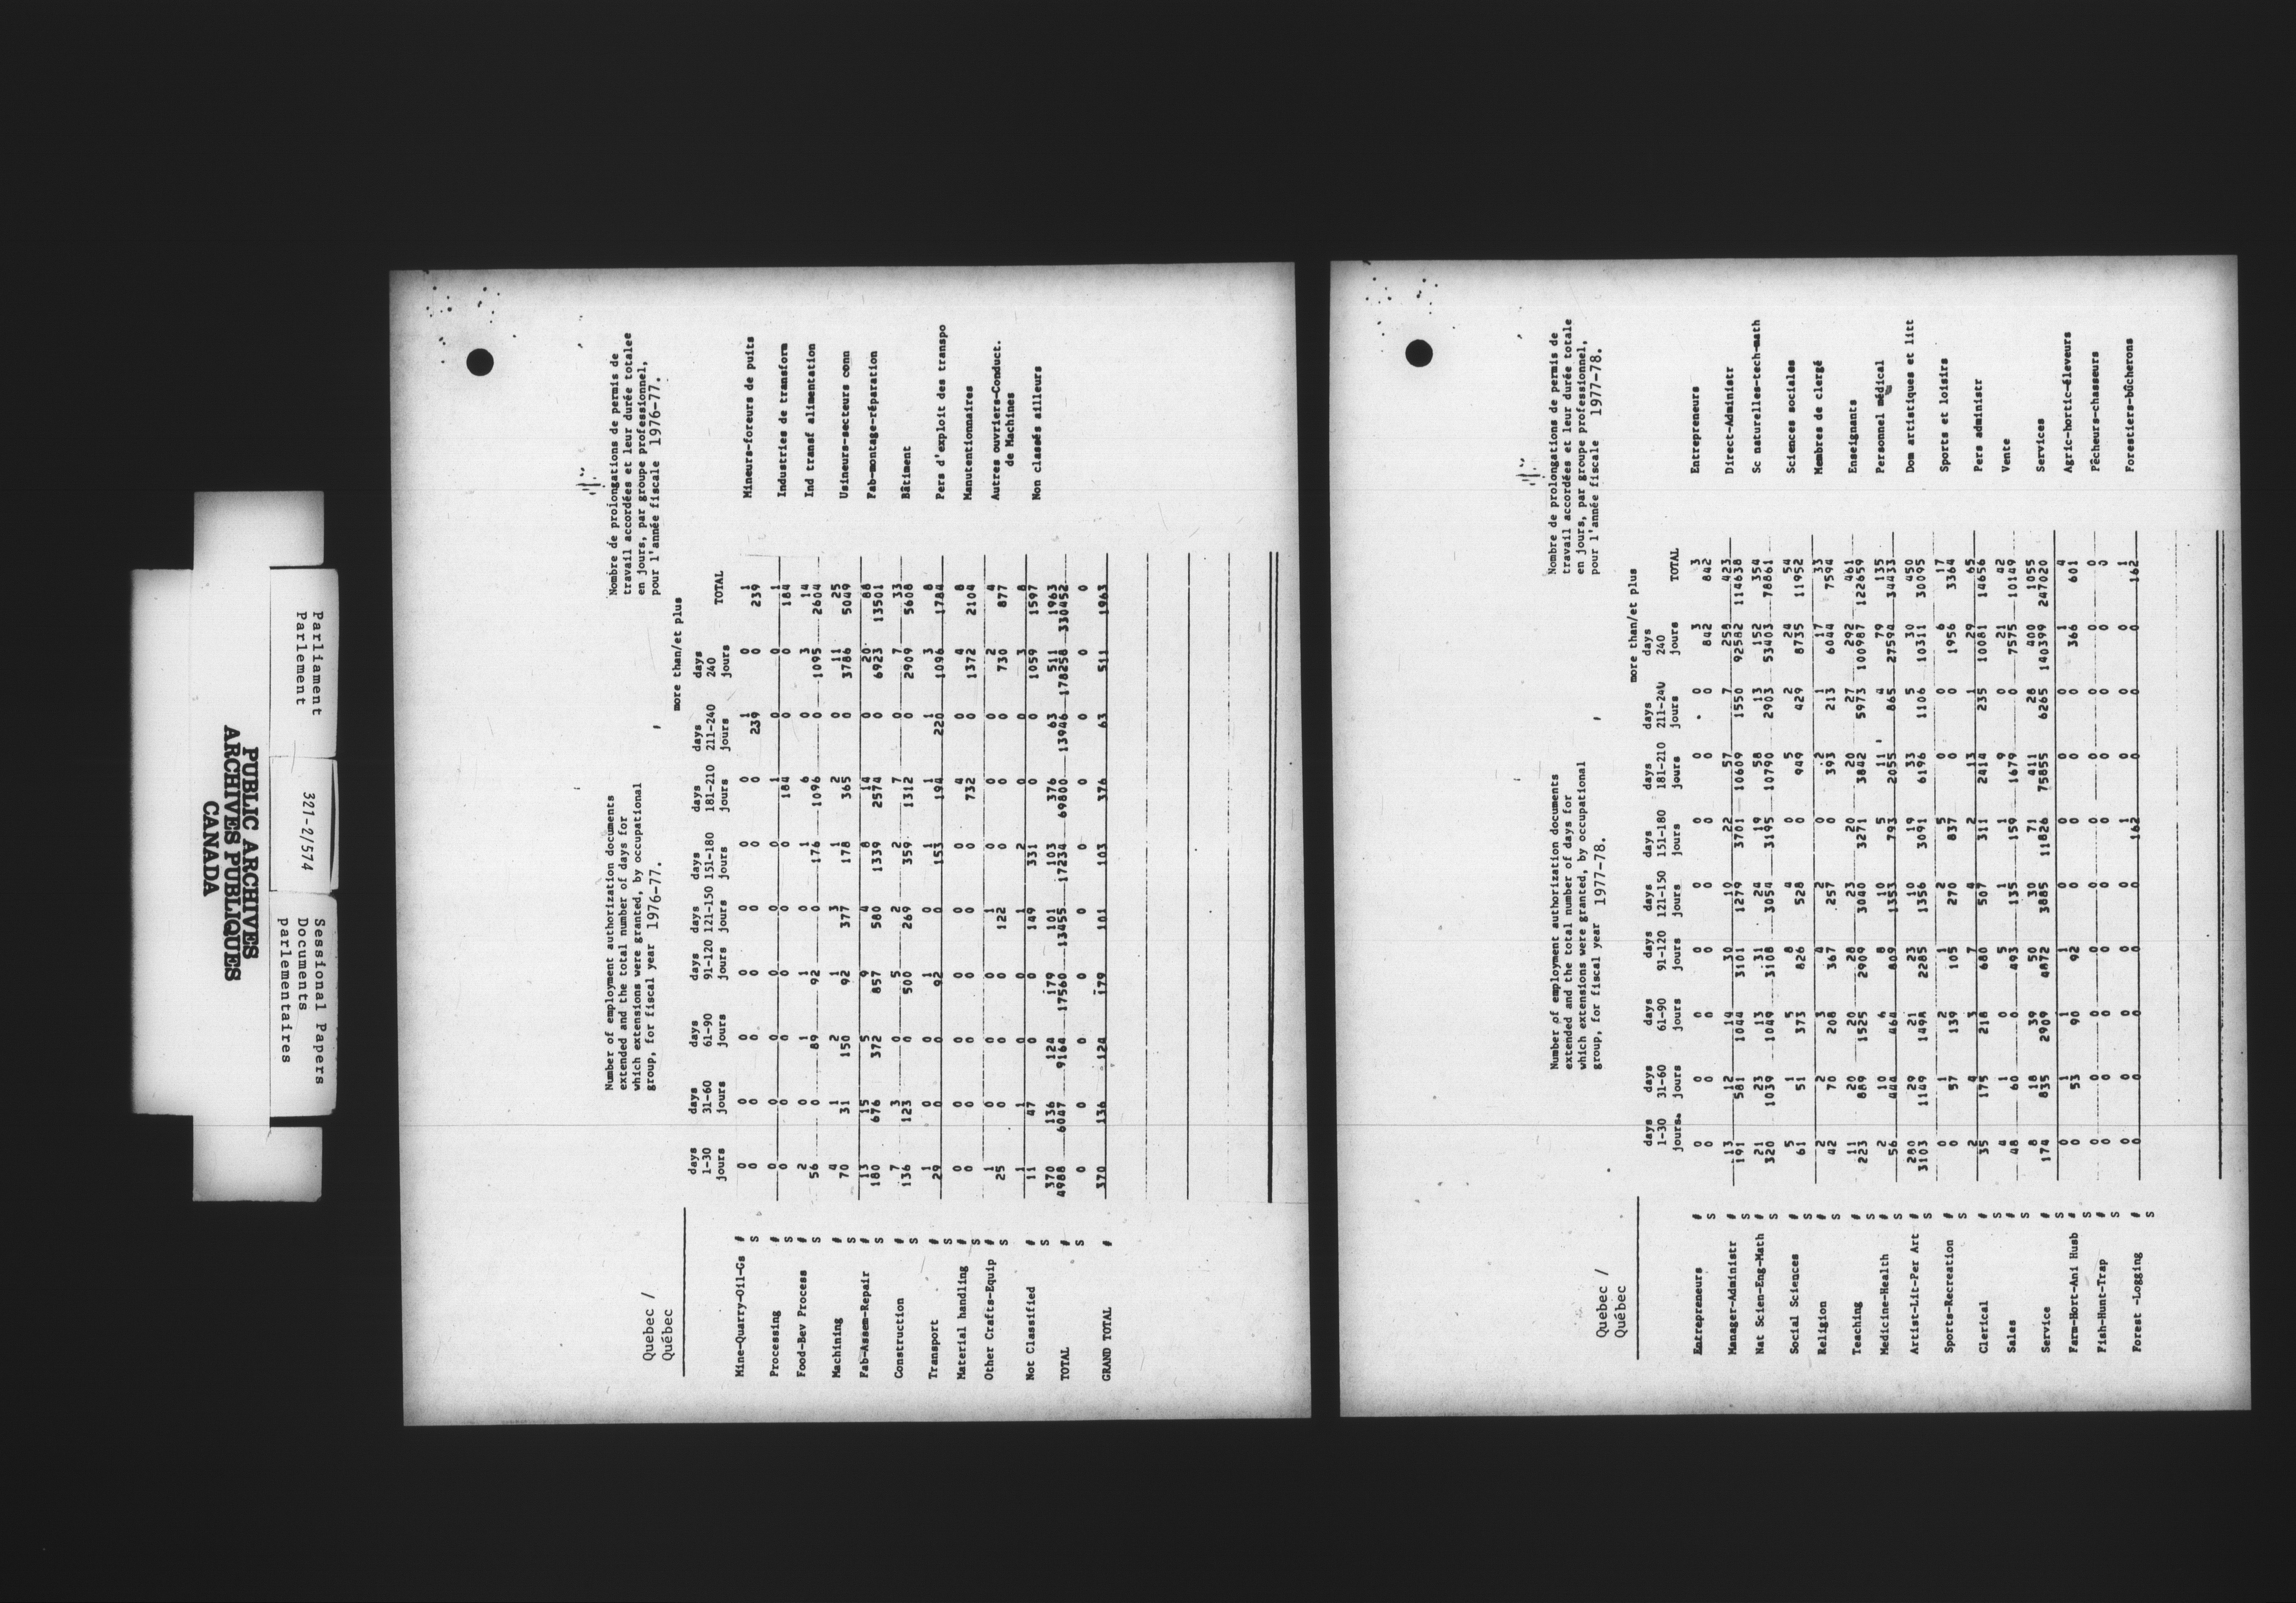 PUBLIC ARCHIVES
ARCHIVES PUBLIQUES
CANADA
Parliament
Parlement
321-2/574
Sessional Papers
Documents
parlementaires
Quebec /
Québec
Number of employment authorization documents
extended and the total number of days for
which extensions were granted, by occupational
group, for fiscal year 1976-77.
Nombre de prolongations de permis de
travail accordées et leur durée totalee
en jours, par groupe professionnel,
pour l'année fiscale 1976-77.
more than/et plus
days days days days days days days days days
1-30 31-60 61-90 91-120 121-150 151-180 181-210 211-240 240 TOTAL
jours jours jours jours jours jours jours jours jours
Mine-Quarry-Oil-Gs # 0 0 0 0 0 0 0 1 0 1 Mineurs-foreurs de puits
S 0 0 0 0 0 0 0 239 0 239
Processing # 0 0 0 0 0 0 1 0 0 1 Industries de transform
S 0 0 0 0 0 0 184 0 0 184
Food-Bev Process # 2 0 1 1 0 1 6 0 3 14 Ind transf alimentation
S 56 0 89 92 0 176 1096 0 1095 2604
Machining # 4 1 2 1 3 1 2 0 11 25 Usineurs-secteurs conn
S 70 31 150 92 377 178 365 0 3786 5049
Fab-Assem-Repair # 13 15 5 9 4 8 14 0 20 88 Fab-montage-réparation
S 180 676 372 857 580 1339 2574 0 6923 13501
Construction # 7 3 0 5 2 2 7 0 7 33 Bâtiment
S 136 123 0 500 269 359 1312 0 2909 5608
Transport # 1 0 0 1 0 1 1 1 3 8 Pers d'exploit des transpo
S 29 0 0 92 0 153 194 220 1096 1784
Material handling # 0 0 0 0 0 0 4 0 4 8 Manutentionnaires
S 0 0 0 0 0 0 732 0 1372 2104
Other Crafts-Equip # 1 0 0 0 1 0 0 0 2 4 Autres ouvriers-Conduct.
S 25 0 0 0 122 0 0 0 730 877 de Machines
Not Classified # 1 1 0 0 1 2 0 0 3 8 Non classés ailleurs
S 11 47 0 0 149 331 0 0 1059 1597
TOTAL # 370 136 124 179 101 103 376 63 511 1963
S 4988 6047 9164 17560 13455 17234 69800 13946 178258 330452
0 0 0 0 0 0 0 0 0 0
GRAND TOTAL # 370 136 124 179 101 103 376 63 511 1963
Quebec /
Québec
Number of employment authorization documents
extended and the total number of days for
which extensions were granted, by occupational
group, for fiscal year 1977-78.
Nombre de prolongations de permis de
travail accordées et leur durée totale
en jours, par groupe professionnel,
pour l'année fiscale 1977-78.
more than/et plus
days days days days days days days days days
1-30 31-60 61-90 91-120 121-150 151-180 181-210 211-240 240 TOTAL
jours. jours jours jours jours jours jours jours jours
Entrepreneurs # 0 0 0 0 0 0 0 0 3 3 Entrepreneurs
S 0 0 0 0 0 0 0 0 842 842
Manager-Administr # 13 12 14 30 10 22 57 7 258 423 Direct-Administr
S 191 581 1044 3101 1279 3701 10609 1550 92582 114638
Nat Scien-Eng-Math # 21 23 13 31 24 19 58 13 152 354 Sc naturelles-tech-math
S 320 1039 1049 3108 3054 3195 10790 2903 53403 78861
Social Sciences # 5 1 5 8 4 0 5 2 24 54 Sciences sociales
S 61 51 373 826 528 0 949 429 8735 11952
Religion # 2 2 3 4 2 0 2 1 17 33 Membres de clergé
S 42 70 208 367 257 0 393 213 6044 7594
Teaching # 11 20 20 28 23 20 20 27 292 461 Enseignants
S 223 889 1525 2909 3040 3271 3842 5973 100987 122659
Medicine-Health # 2 10 6 8 10 5 11 4 79 135 Personnel médical
S 56 444 464 809 1353 793 2055 865 27594 34433
Artist-Lit-Per Art # 280 29 21 23 10 19 33 5 30 450 Dom artistiques et litt
S 3103 1149 1498 2285 1356 3091 6196 1106 10311 30095
Sports-Recreation # 0 1 2 1 2 5 0 0 6 17 Sports et loisirs
S 0 57 139 105 270 837 0 0 1956 3364
Clerical # 2 4 3 7 4 2 13 1 29 65 Pers administr
S 35 175 218 680 507 311 2414 235 10081 14656
Sales # 4 1 0 5 1 1 9 0 21 42 Vente
S 48 60 0 493 135 159 1679 0 7575 10149
Service # 8 18 39 50 30 71 411 28 400 1055 Services
S 174 835 2909 4872 3885 11826 75855 6265 140399 247020
Farm-Hort-Ani Husb # 0 1 1 1 0 0 0 0 1 4 Agric-hortic-éleveurs
S 0 53 90 92 0 0 0 0 366 601
Fish-Hunt-Trap # 0 0 0 0 0 0 0 0 0 0 Pêcheurs-chasseurs
S 0 0 0 0 0 0 0 0 0 0
Forest -Logging # 0 0 0 0 0 1 0 0 0 1 Forestiers-bûcherons
S 0 0 0 0 0 162 0 0 0 162